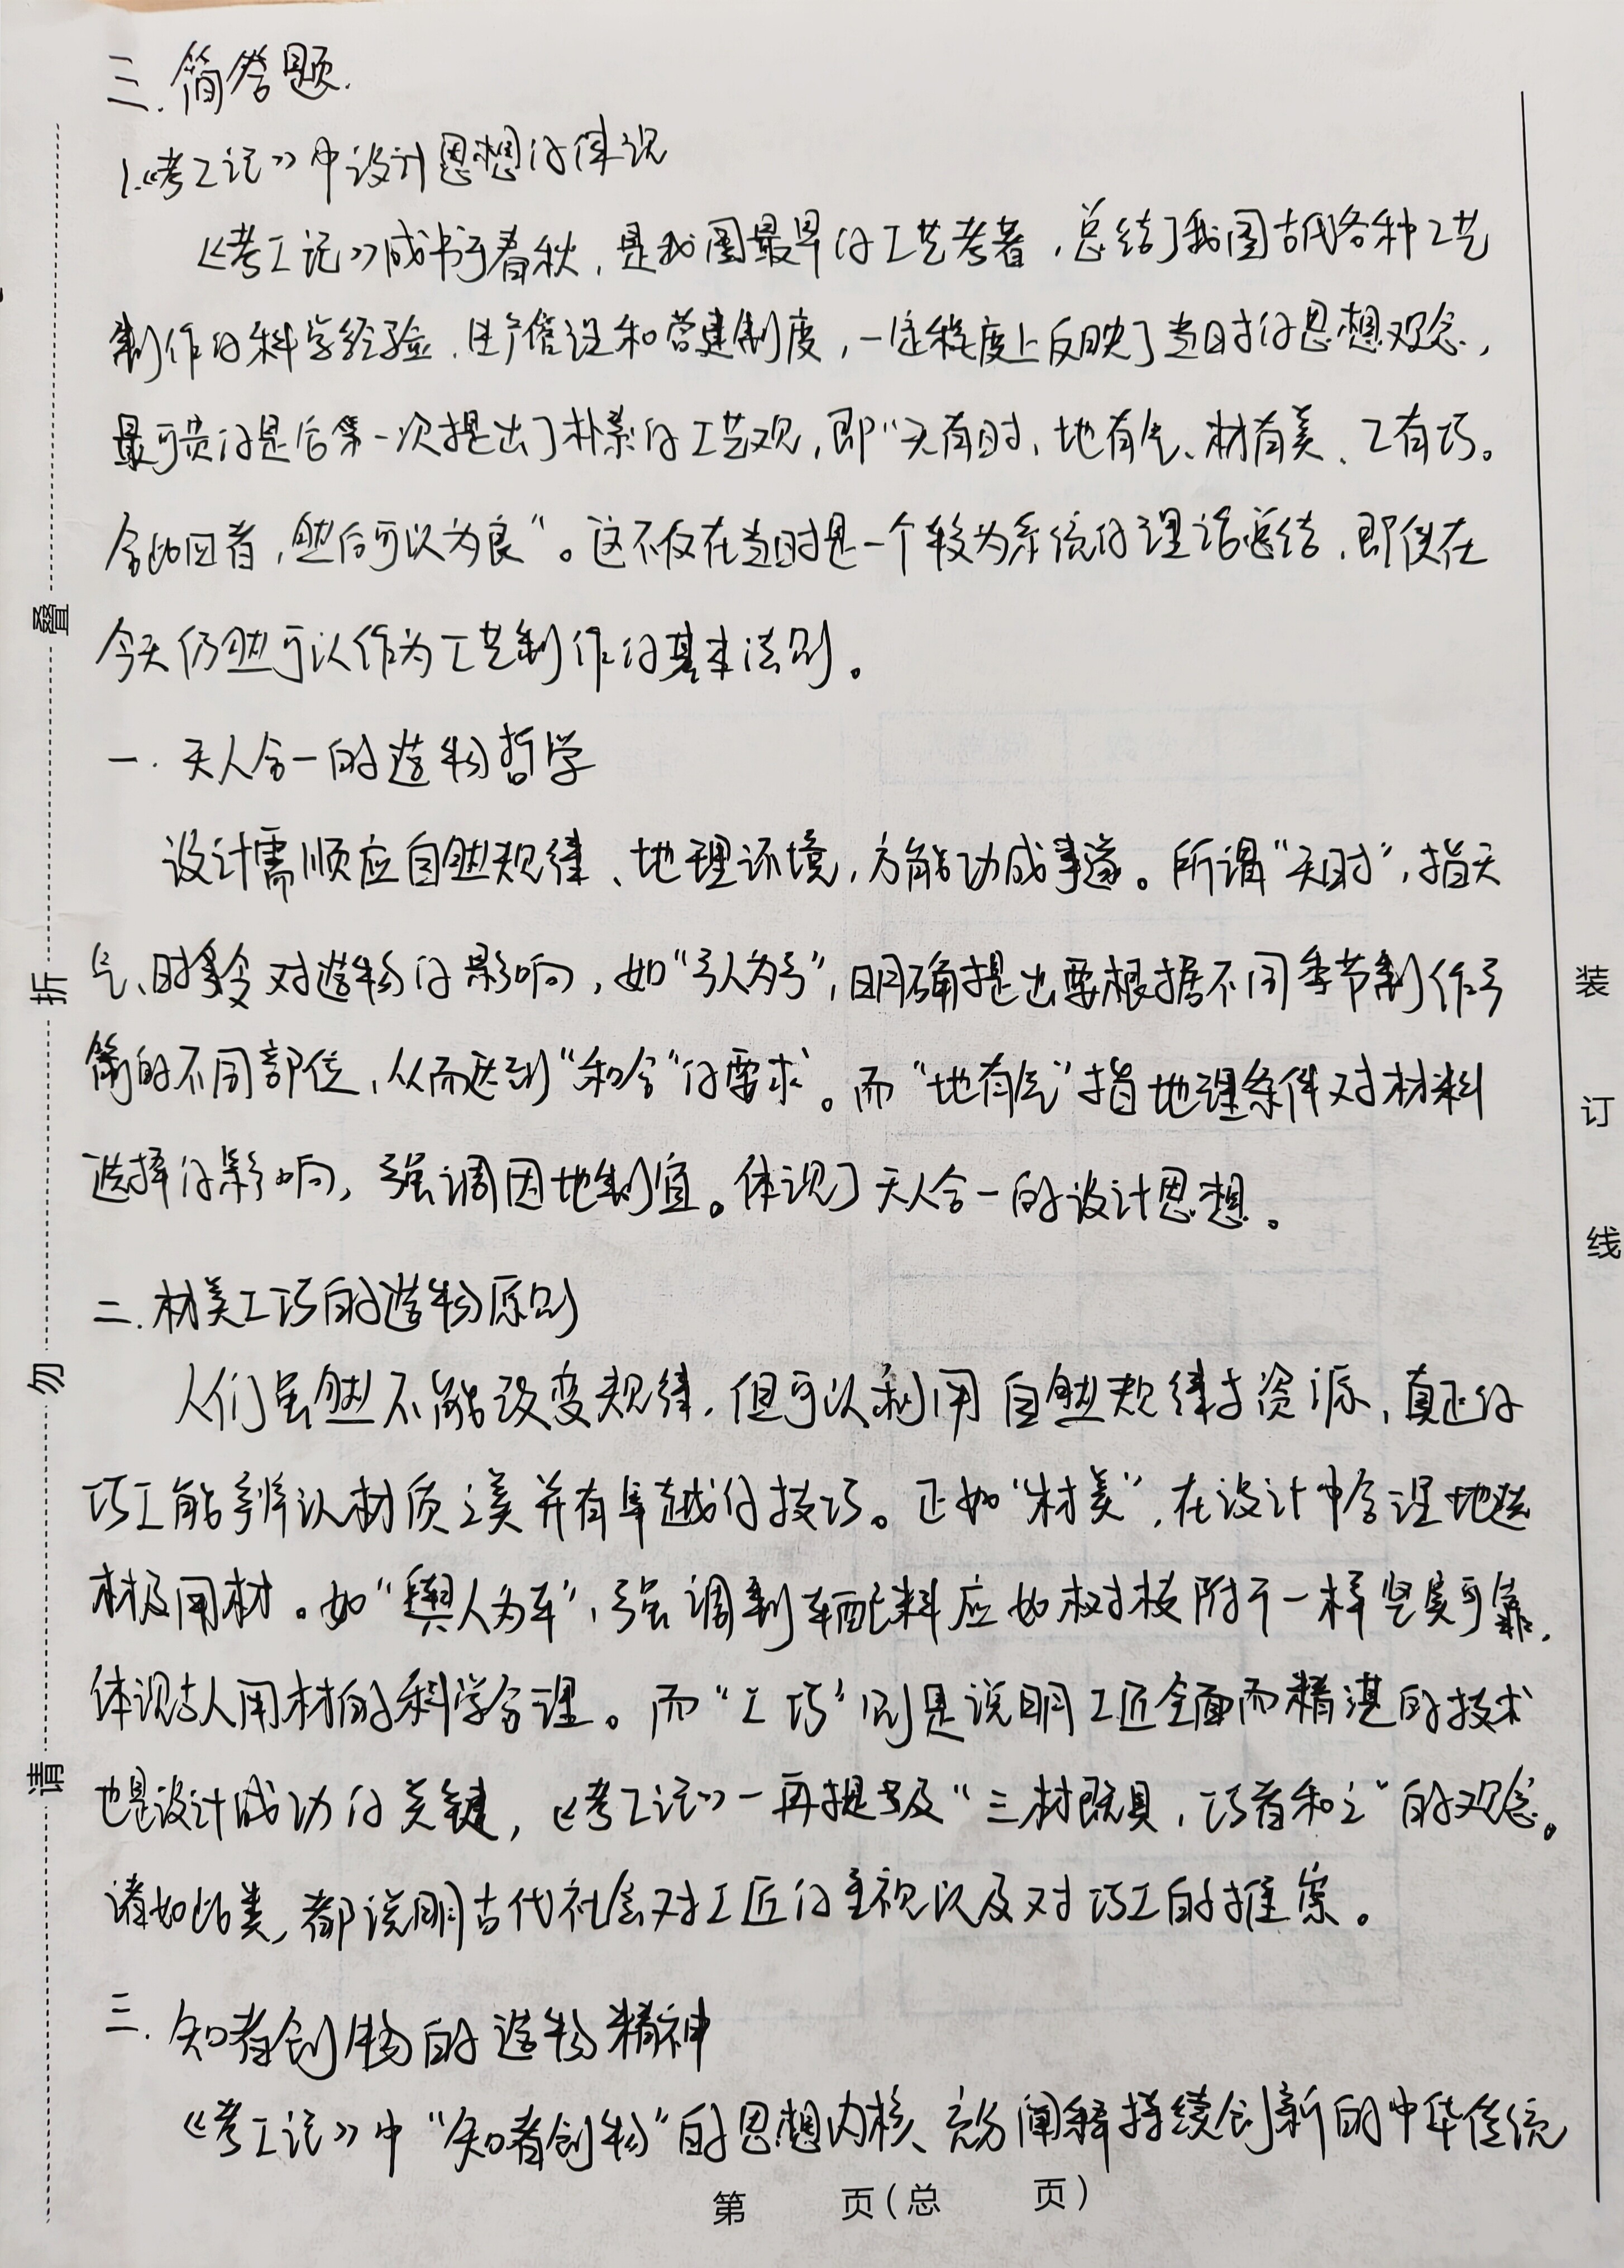 三.简答题.
1.《考工记》中设计思想的体现
《考工记》成书于春秋,是我国最早的工艺考著,总结了我国古代各种工艺
制作的科学经验、生产管理和营建制度,一定程度上反映了当时的思想观念,
最可贵的是后第一次提出了朴素的工艺观,即“天有时、地有气、材有美、工有巧。
合此四者,然后可以为良”。这不仅在当时是一个较为系统的理论总结,即使在
今天仍然可以作为工艺制作的基本法则。
一.天人合一的造物哲学
设计需顺应自然规律、地理环境,方能功成事遂。所谓“天时”,指天
气、时令对造物的影响,如“弓人为弓”,明确提出要根据不同季节制作弓
箭的不同部位,从而达到“和合”的要求。而“地有气”指地理条件对材料
选择的影响,强调因地制宜。体现了天人合一的设计思想。
二.材美工巧的造物原则
人们虽然不能改变规律,但可以利用自然规律与资源,真正的
巧工能辨认材质之美并有卓越的技巧。正如“材美”,在设计中合理地选
材及用材。如“舆人为车”,强调制车配料应如树枝附干一样坚实可靠,
体现古人用材的科学合理。而“工巧”则是说明工匠全面而精湛的技术
也是设计成功的关键,《考工记》一再提及“三材既具,巧者和之”的观念。
诸如此类,都说明古代社会对工匠的重视以及对巧工的推崇。
三.知者创物的造物精神
《考工记》中“知者创物”的思想内核、充分阐释持续创新的中华传统
第 页(总 页)
叠
折
勿
请
装
订
线